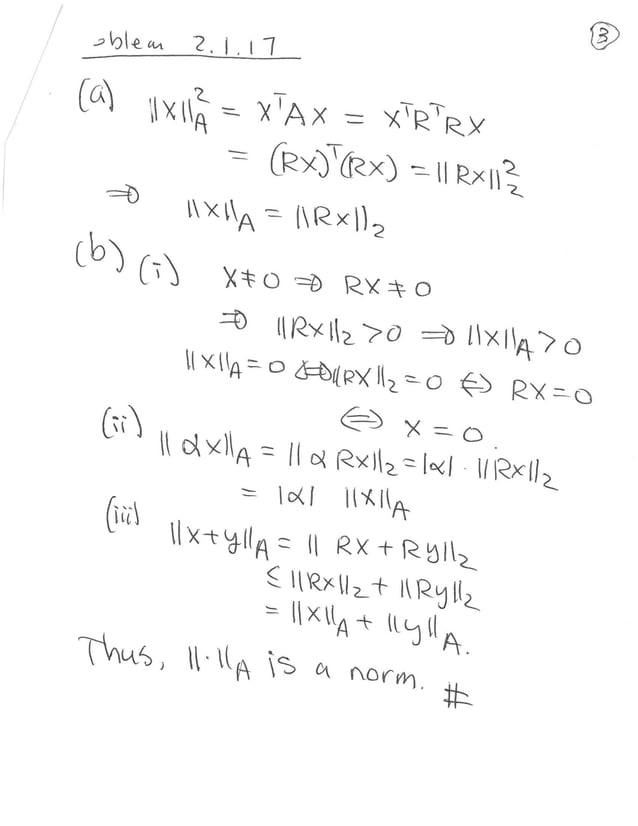 oblem 2.1.17 ③
(a) ||x||_A^2 = x^T A x = x^T R^T R x
= (Rx)^T (Rx) = ||Rx||_2^2
⇒ ||x||_A = ||Rx||_2
(b) (i) x ≠ 0 ⇒ Rx ≠ 0
⇒ ||Rx||_2 > 0 ⇒ ||x||_A > 0
||x||_A = 0 ⇔ ||Rx||_2 = 0 ⇔ Rx = 0
⇔ x = 0.
(ii) ||αx||_A = ||αRx||_2 = |α| · ||Rx||_2
= |α| ||x||_A
(iii) ||x+y||_A = || Rx + Ry||_2
≤ ||Rx||_2 + ||Ry||_2
= ||x||_A + ||y||_A.
Thus, ||·||_A is a norm. #